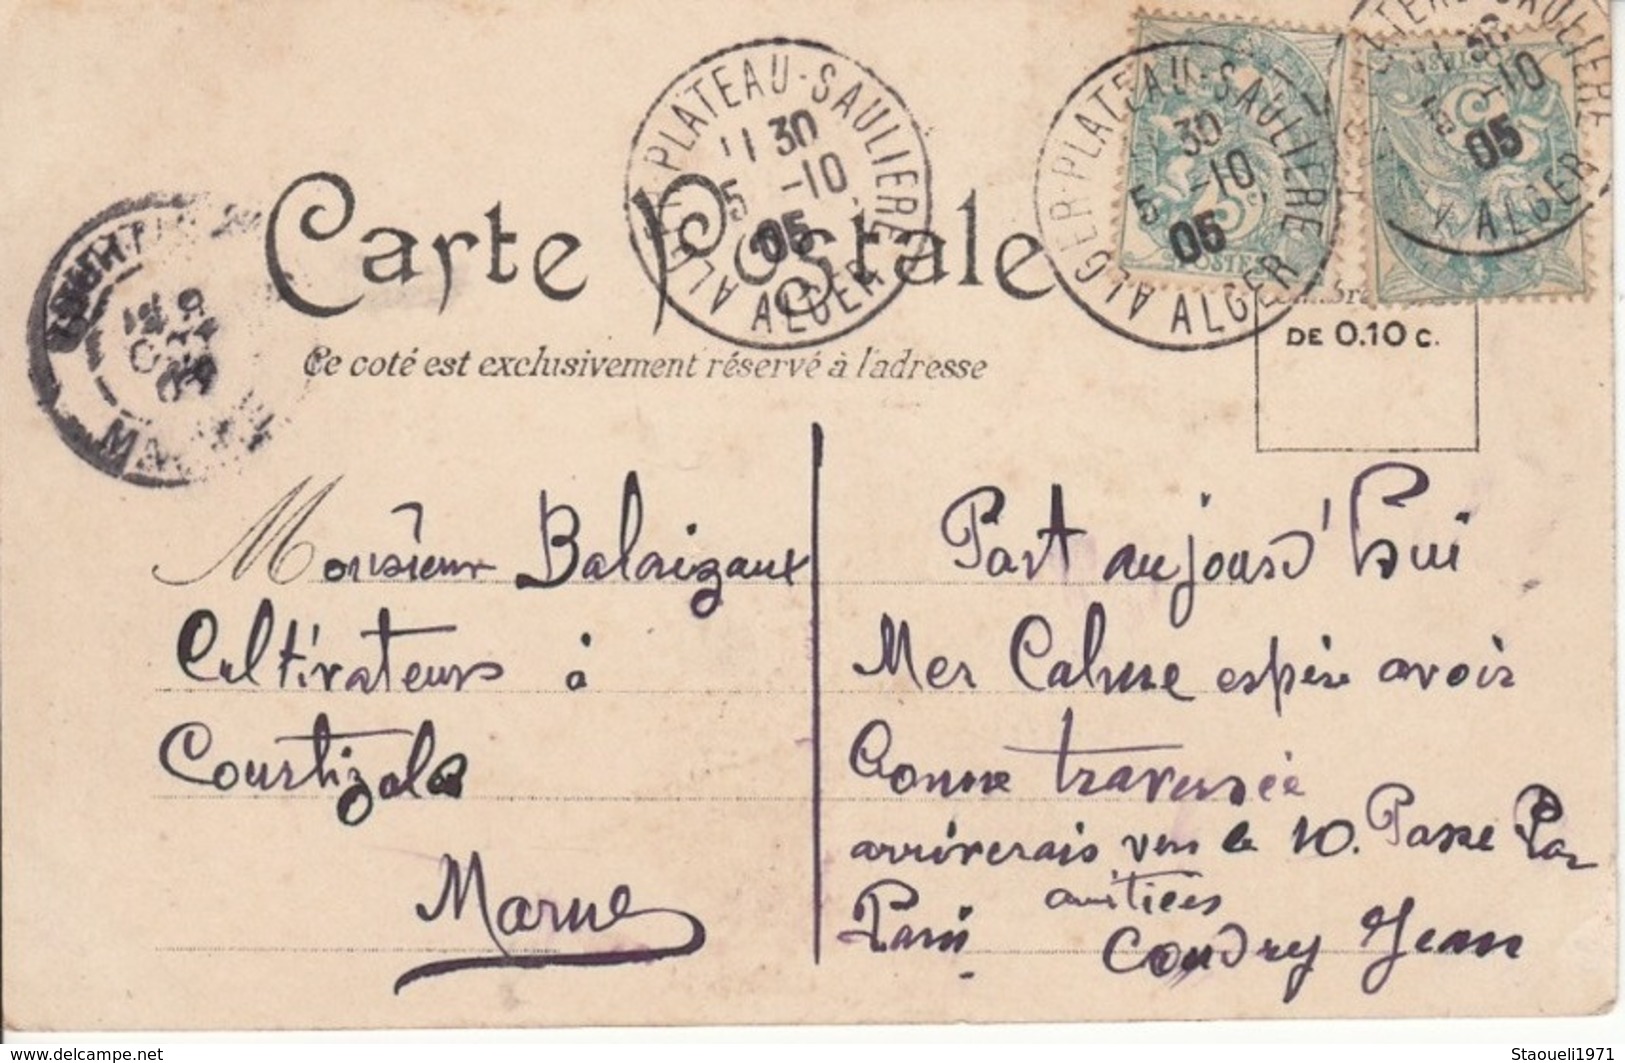 ALGER-PLATEAU-SAULIERE
11 30
5 -10
05
ALGER
ALGER-PLATEAU-SAULIERE
30
5 -10
05
ALGER
POSTES
30
-10
05
ALGER
Carte Postale
Ce coté est exclusivement réservé à l'adresse
DE 0.10 c.
Monsieur Balaizaux
Cultivateurs à
Courtizols
Marne
Part aujourd'hui
Mer Calme espère avoir
bonne traversée
arriverais vers le 10. Passe Par
Paris
amitiées
Coudry Jean
https://www.delcampe.net
Staoueli1971